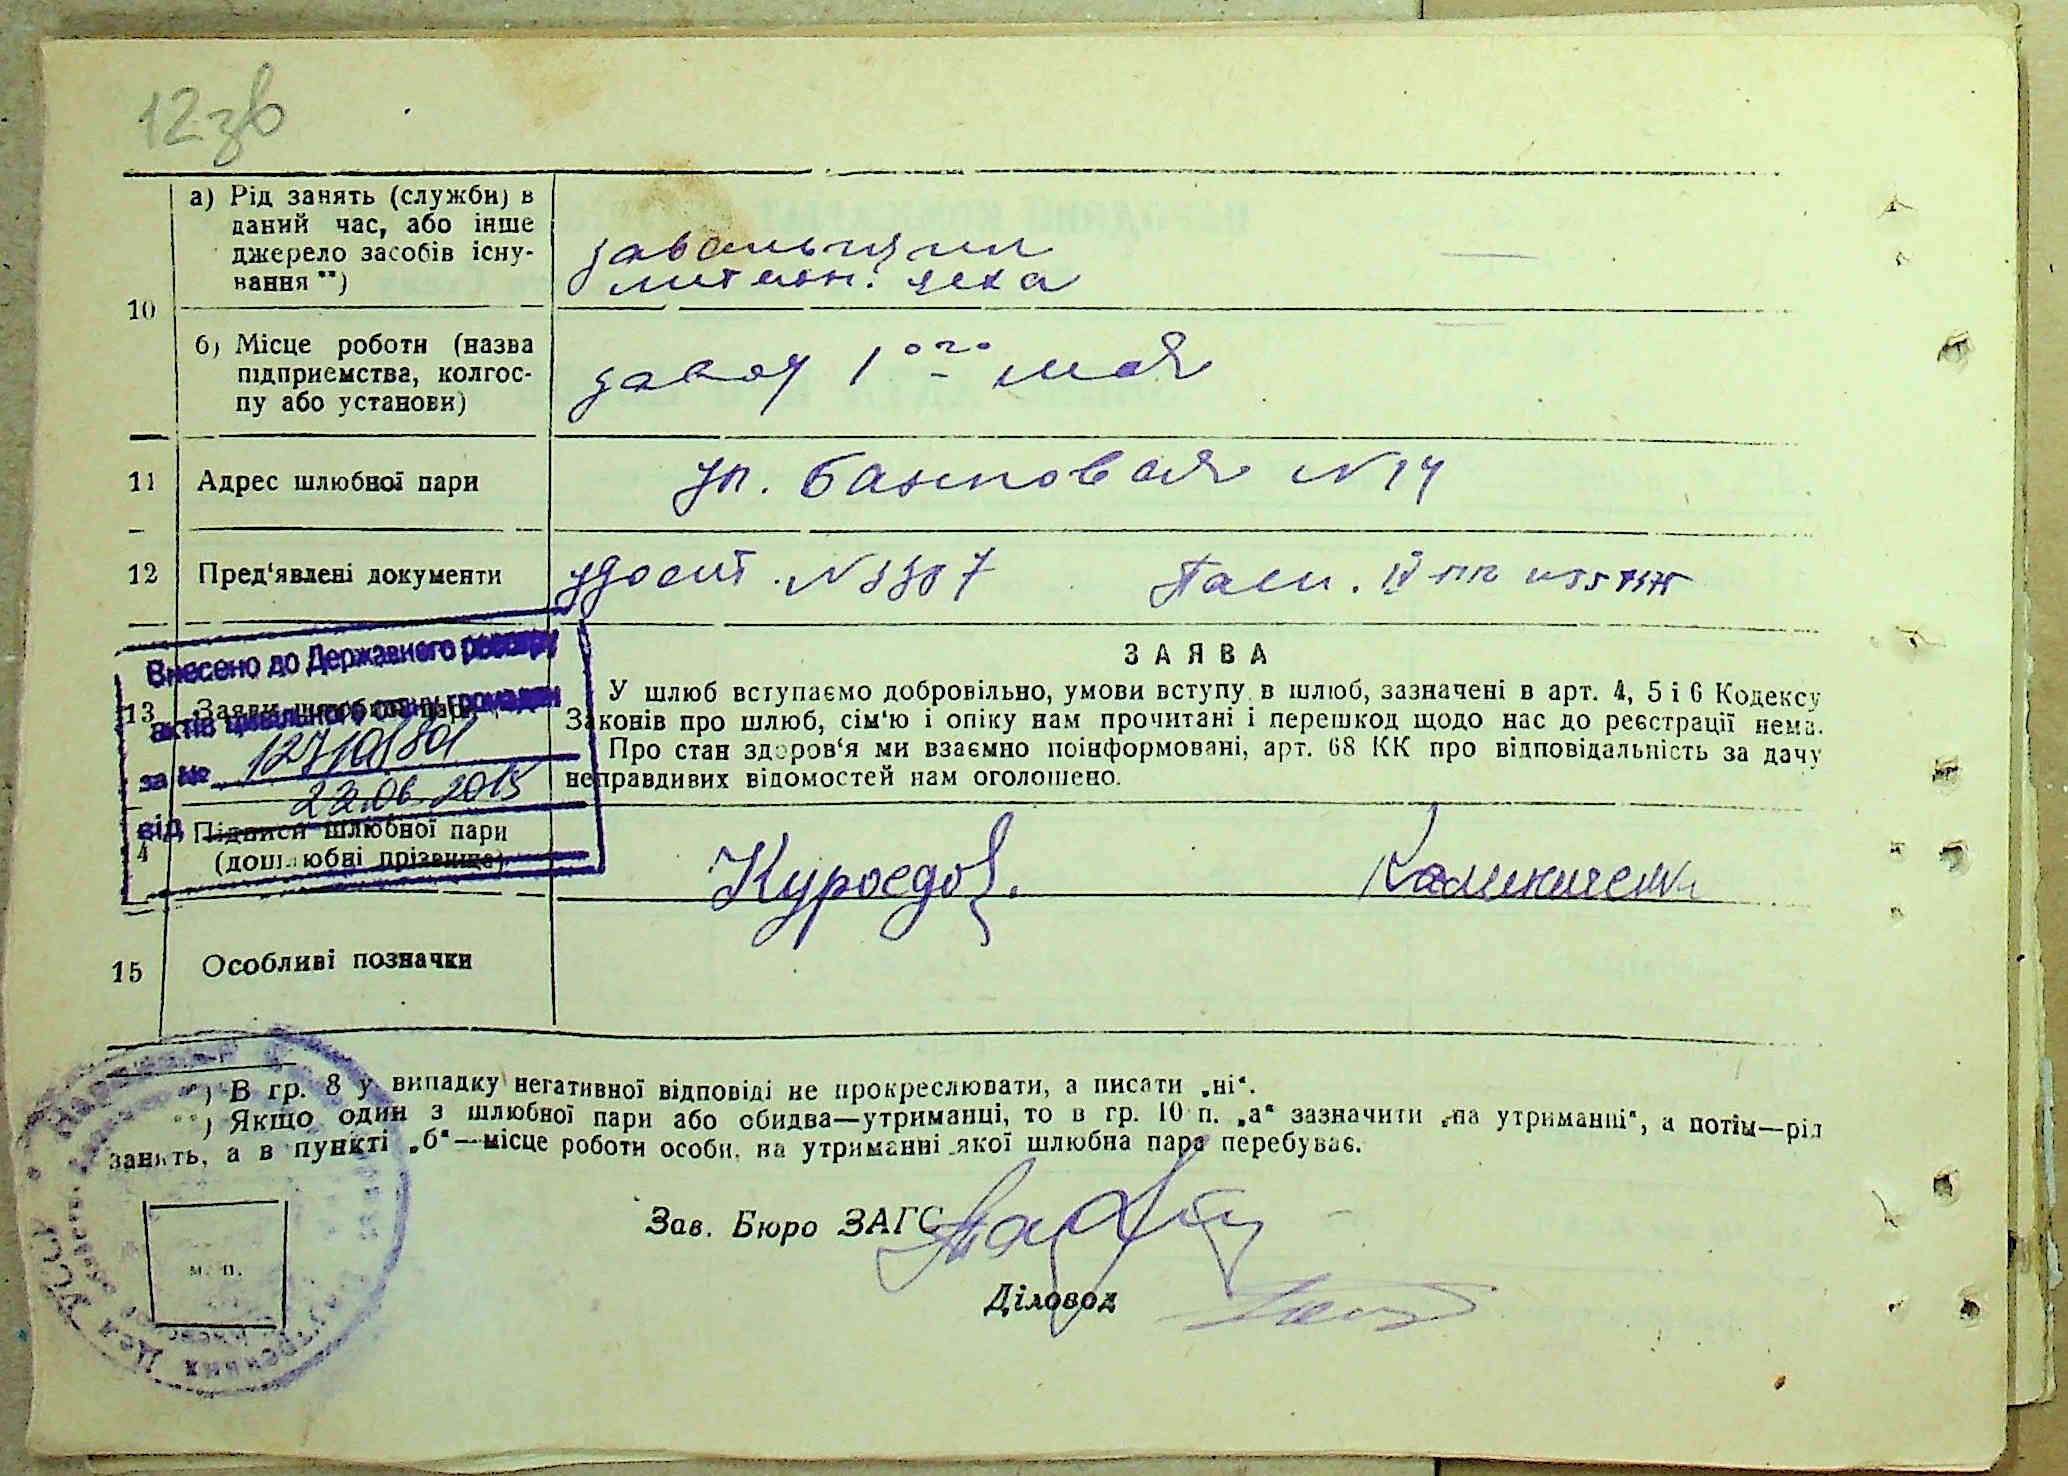 12 зв
10
а) Рід занять (служби) в
даний час, або інше
джерело засобів існу-
вання **)
завальщик
литейн. цеха
б) Місце роботи (назва
підприємства, колгос-
пу або установи)
завод 1 ого мая
11 Адрес шлюбної пари
ул. Банковая N 14
12 Пред'явлені документи
удост. N 3307 Пасп. IV
Внесено до Державного реєстру
актів цивільного стану громадян
за № 127101801
від 22.06.2015
13 Заяви шлюбної пари
ЗАЯВА
У шлюб вступаємо добровільно, умови вступу в шлюб, зазначені в арт. 4, 5 і 6 Кодексу
Законів про шлюб, сім'ю і опіку нам прочитані і перешкод щодо нас до реєстрації нема.
Про стан здоров'я ми взаємно поінформовані, арт. 68 КК про відповідальність за дачу
неправдивих відомостей нам оголошено.
4 Підписи шлюбної пари
(дошлюбні прізвища)
Куроедов
15 Особливі позначки
*) В гр. 8 у випадку негативної відповіді не прокреслювати, а писати „ні“.
**) Якщо один з шлюбної пари або обидва—утриманці, то в гр. 10 п. „а“ зазначити „на утриманні“, а потім—рід
занять, а в пункті „б“—місце роботи особи, на утриманні якої шлюбна пара перебуває.
Зав. Бюро ЗАГС
Діловод
м. п.